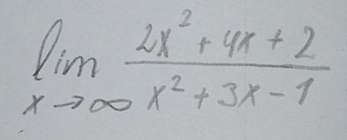 lim 2x² + 4x + 2
x → ∞ x² + 3x - 1